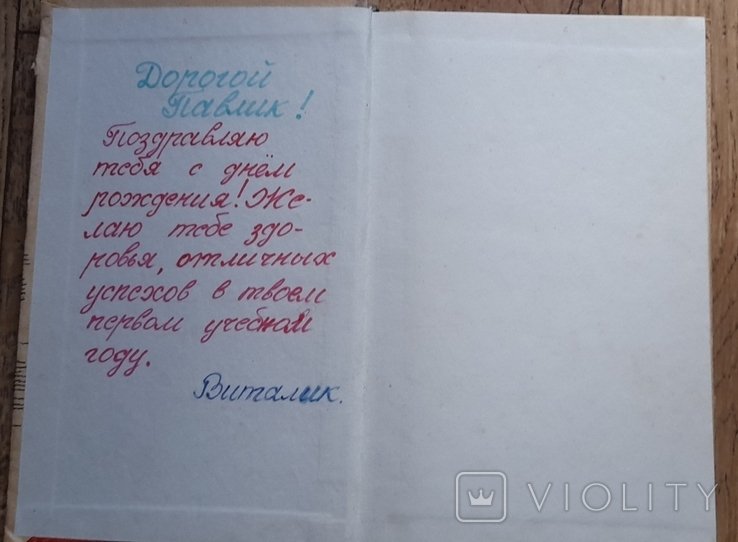 Дорогой
Павлик!
Поздравляю
тебя с днём
рождения! Же-
лаю тебе здо-
ровья, отличных
успехов в твоем
первом учебном
году.
Виталик.
VIOLITY